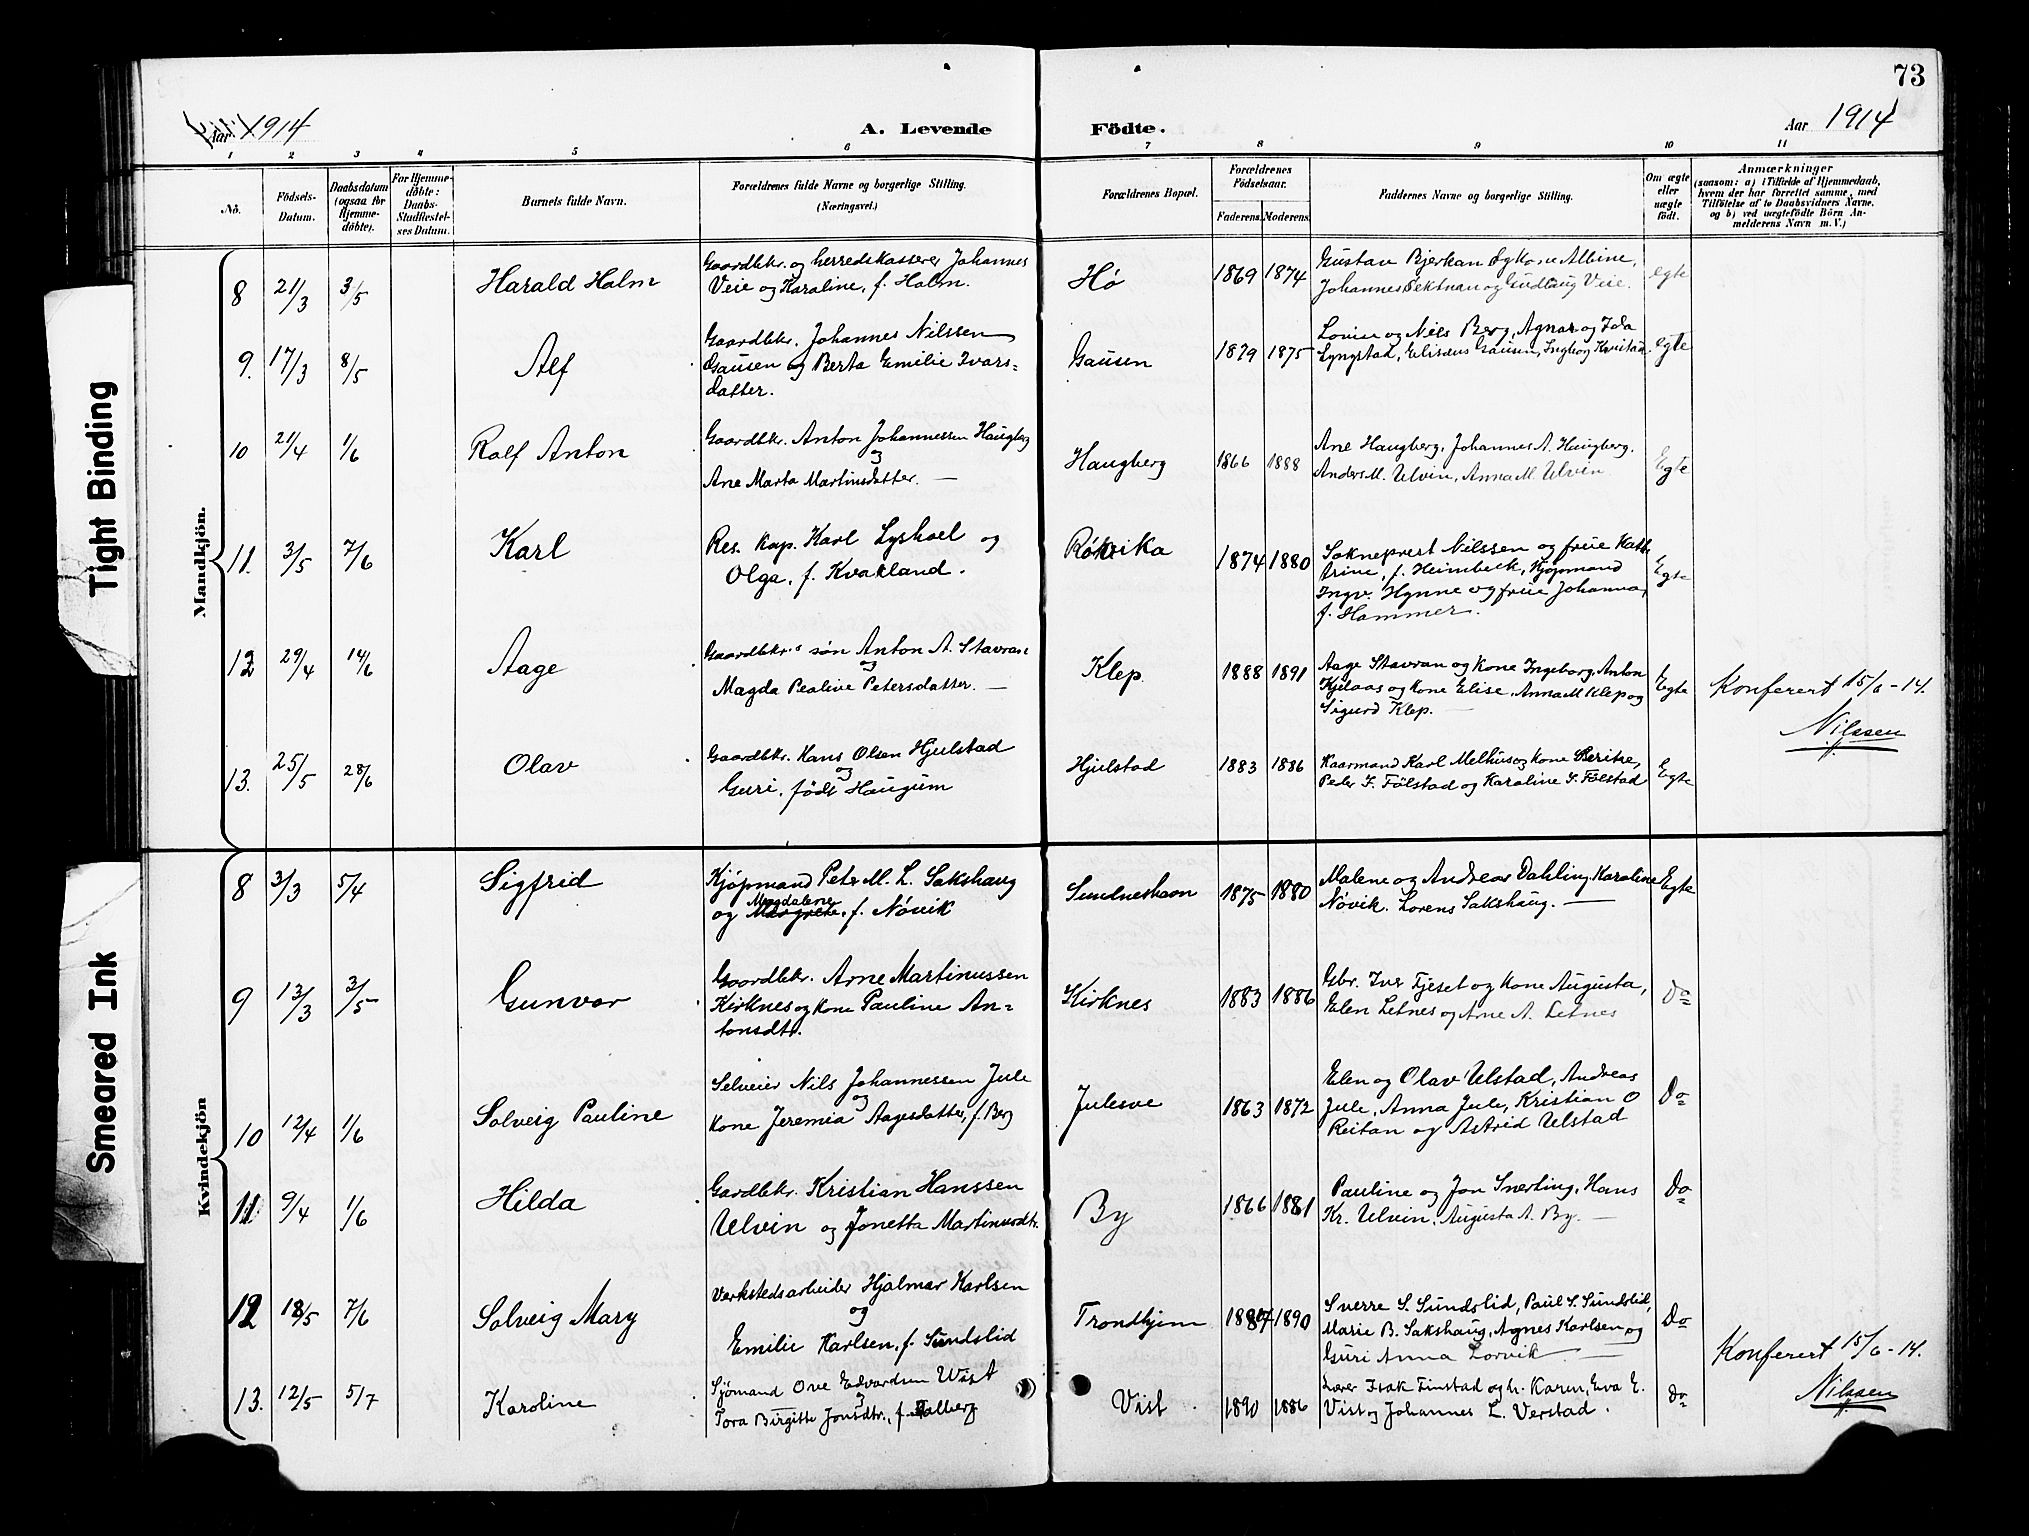 73
Aar 1914
A. Levende Födte.
Aar 1914
1 2 3 4 5 6 7 8 9 10 11
No.
Födsels-Datum.
Daabsdatum (ogsaa for Hjemme-döbte).
For Hjemme-döbte: Daabs-Stadfæstel-ses Datum.
Barnets fulde Navn.
Forældrenes fulde Navne og borgerlige Stilling.
(Næringsvei.)
Forældrenes Bopæl.
Forældrenes Födselsaar.
Faderens. Moderens.
Faddernes Navne og borgerlige Stilling.
Om ægte eller uægte födt.
Anmærkninger
(saasom: a) i Tilfælde af Hjemmedaab, hvem der har forrettet samme, med Tilföielse af to Daabsvidners Navne, og b) ved uægtefödte Börn An-melderens Navn m. V.)
Tight Binding
Smeared Ink
Mandkjön.
8 21/3 3/5 Harald Holm
Gaardbkr. og herredskasserer Johannes
Veie og Karoline, f. Holm.
Hø 1869 1874
Gustav Bjerkan og kone Albine,
Johannes Sektnan og Gudlaug Veie.
egte
9. 17/3 8/5 Alf
Gaardbkr. Johannes Nilssen
Gausen og Berta Emilie Ivars-
datter.
Gausen 1879 1875
Lovise og Nils Berg, Agnar og Ida
Lyngstad, Elisæus Gausen, Ingeborg Kvistad.
egte
10 21/4 1/6 Rolf Anton
Gaardbkr. Anton Johannessen Haugberg
og
Ane Marta Martinusdatter. —
Haugberg 1866 1888
Ane Haugberg, Johannes A. Haugberg.
Anders M. Ulvin, Anna M. Ulvin
Egte
11. 3/5 7/6 Karl
Res. kap. Karl Lyshoel og
Olga, f. Kvakland.
Røkvika 1874 1880
Sokneprest Nilssen og frue Kath
trine, f. Heimbeck, Kjøpmand
Ingv. Hynne og frue Johanna,
f. Hammer.
Egte
12 29/4 14/6 Aage
Gaardbkr.s søn Anton A. Stavran
og
Magda Pealine Petersdatter. —
Klep. 1888 1891
Aage Stavran og kone Ingeborg, Anton
Kjelaas og kone Elise, Anna M Klep og
Sigurd Klep. —
Egte
Konferert 15/6-14.
Nilssen
13. 25/5 28/6 Olav
Gaardbkr. Hans Olsen Hjulstad
og
Guri, født Haugum
Hjulstad 1883 1886
Kaarmand Karl Melhus og kone Beritre,
Peder I. Følstad og Karoline I. Følstad
Egte
Kvindekjön
8 3/3 5/4 Sigfrid
Kjøpmand Peter M. L. Sakshaug
Magdalene
og Margrete, f. Nøvik
Sundneshavn 1875 1880
Malene og Andreas Dahling, Karoline
Nøvik. Lorens Sakshaug. —
Egte
9 13/3 3/5 Gunvor
Gaardbkr. Arne Martinussen
Kirknes og kone Pauline An-
tonsdtr.
Kirknes 1883 1886
Gbr. Iver Fjeset og kone Augusta,
Elen Letnes og Arne A. Letnes
Do
10 12/4 1/6 Solveig Pauline
Selveier Nils Johannessen Jule
og
kone Jeremia Aagesdatter, f. Berg
Julesve 1863 1872
Elen og Olav Ulstad, Andreas
Jule, Anna Jule, Kristian O
Reitan og Astrid Ulstad
Do
11 9/4 1/6 Hilda
Gardbkr. Kristian Hanssen
Ulvin og Jonetta Martinusdtr.
By 1866 1881
Pauline og Jon Snerting, Hans
Kr. Ulvin, Augusta A. By. —
Do
12 18/5 7/6 Solveig Mary
Verkstedsarbeider Hjalmar Karlsen
og
Emilie Karlsen, f. Sundslid
Trondhjem 1887 1890
Sverre S. Sundslid, Paul S. Sundslid,
Marie B. Sakshaug, Agnes Karlsen og
Guri Anna Lorvik —
Do
Konferert 15/6-14.
Nilssen
13. 12/5 5/7 Karoline
Sjømand Ove Edvardsen Wist
og
Tora Birgitte Jonsdtr., f. Falberg
Vist. 1890 1886
Lærer Isak Finstad og h. Karen, Eva E.
Vist og Johannes L. Verstad.
Do